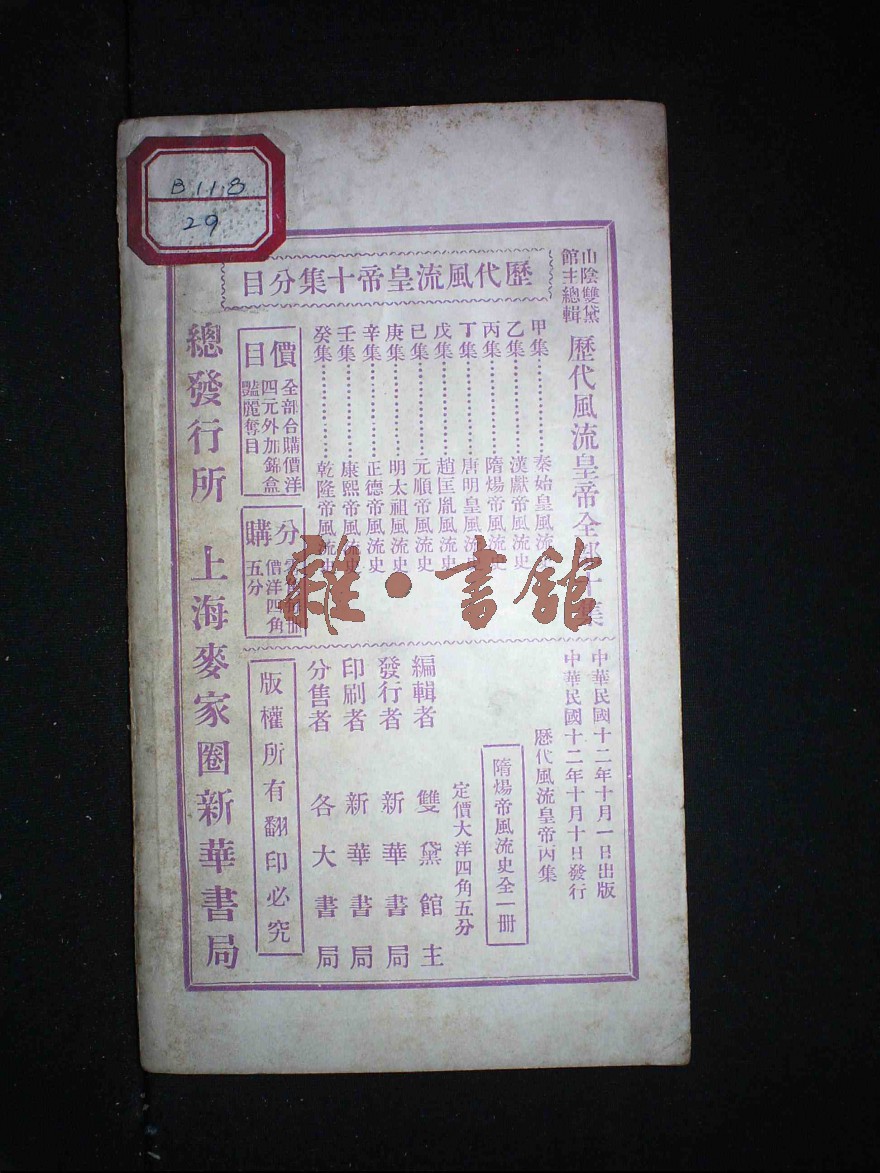 B.11.8
29
山陰雙黛
館主總輯
歷代風流皇帝全部十集
歷代風流皇帝十集分目
甲集……秦始皇風流史
乙集……漢獻帝風流史
丙集……隋煬帝風流史
丁集……唐明皇風流史
戊集……趙匡胤風流史
已集……元順帝風流史
庚集……明太祖風流史
辛集……正德帝風流史
壬集……康熙帝風流史
癸集……乾隆帝風流史
價目
全部合購價洋
四元外加錦盒
豔麗奪目
分購
冊
價洋四角
五分
中華民國十二年十月一日出版
中華民國十二年十月十日發行
歷代風流皇帝丙集
隋煬帝風流史全一冊
定價大洋四角五分
編輯者 雙黛館主
發行者 新華書局
印刷者 新華書局
分售者 各大書局
版權所有翻印必究
總發行所 上海麥家圈新華書局
雜·書館